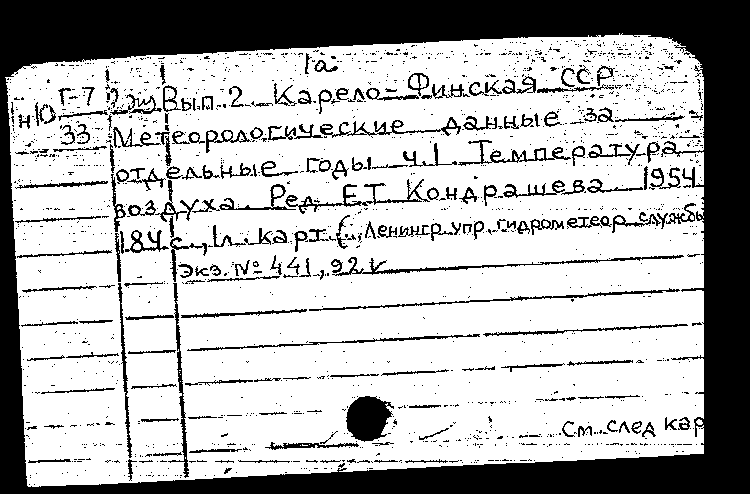 1а
Г-7 2 экз Вып. 2. Карело-Финская ССР
н10
33 Метеорологические данные за
отдельные годы ч.1. Температура
воздуха. Ред. Е.Т. Кондрашева 1954
184 с., 1л. карт. (Ленингр. упр. гидрометеор. службы
Экз. № 441, 92 v
См. след кар